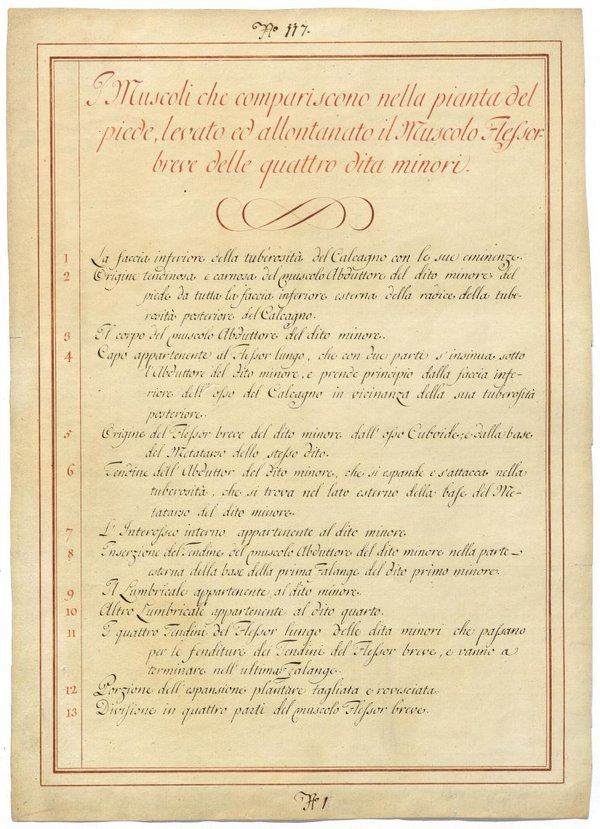 Nº 117.
I Muscoli che compariscono nella pianta del
piede, levato ed allontanato il Muscolo Flessor
breve delle quattro dita minori.
1 La faccia inferiore della tuberosità del Calcagno con le sue eminenze.
2 Origine tendinosa e carnosa del muscolo Abduttore del dito minore del
piede da tutta la faccia inferiore esterna della radice della tube-
rosità posteriore del Calcagno.
3 Il corpo del muscolo Abduttore del dito minore.
4 Capo appartenente al Flessor lungo, che con due parti s'insinua sotto
l'Abduttore del dito minore, e prende principio dalla faccia infe-
riore dell'osso del Calcagno in vicinanza della sua tuberosità
posteriore.
5 Origine del Flessor breve del dito minore dall'osso Cuboide, e dalla base
del Metatarso dello stesso dito.
6 Tendine dell'Abduttor del dito minore, che si espande e s'attacca nella
tuberosità, che si trova nel lato esterno della base del Me-
tatarso del dito minore.
7 L'Interosseo interno appartenente al dito minore
8 Inserzione del Tendine del muscolo Abduttore del dito minore nella parte
esterna della base della prima Falange del dito primo minore.
9 Il Lumbricale appartenente al dito minore.
10 Altro Lumbricale appartenente al dito quarto.
11 I quattro Tendini del Flessor lungo delle dita minori che passano
per le fenditure dei Tendini del Flessor breve, e vanno a
terminare nell'ultima Falange.
12 Porzione dell'espansione plantare tagliata e rovesciata
13 Divisione in quattro parti del muscolo Flessor breve.
Nº 1